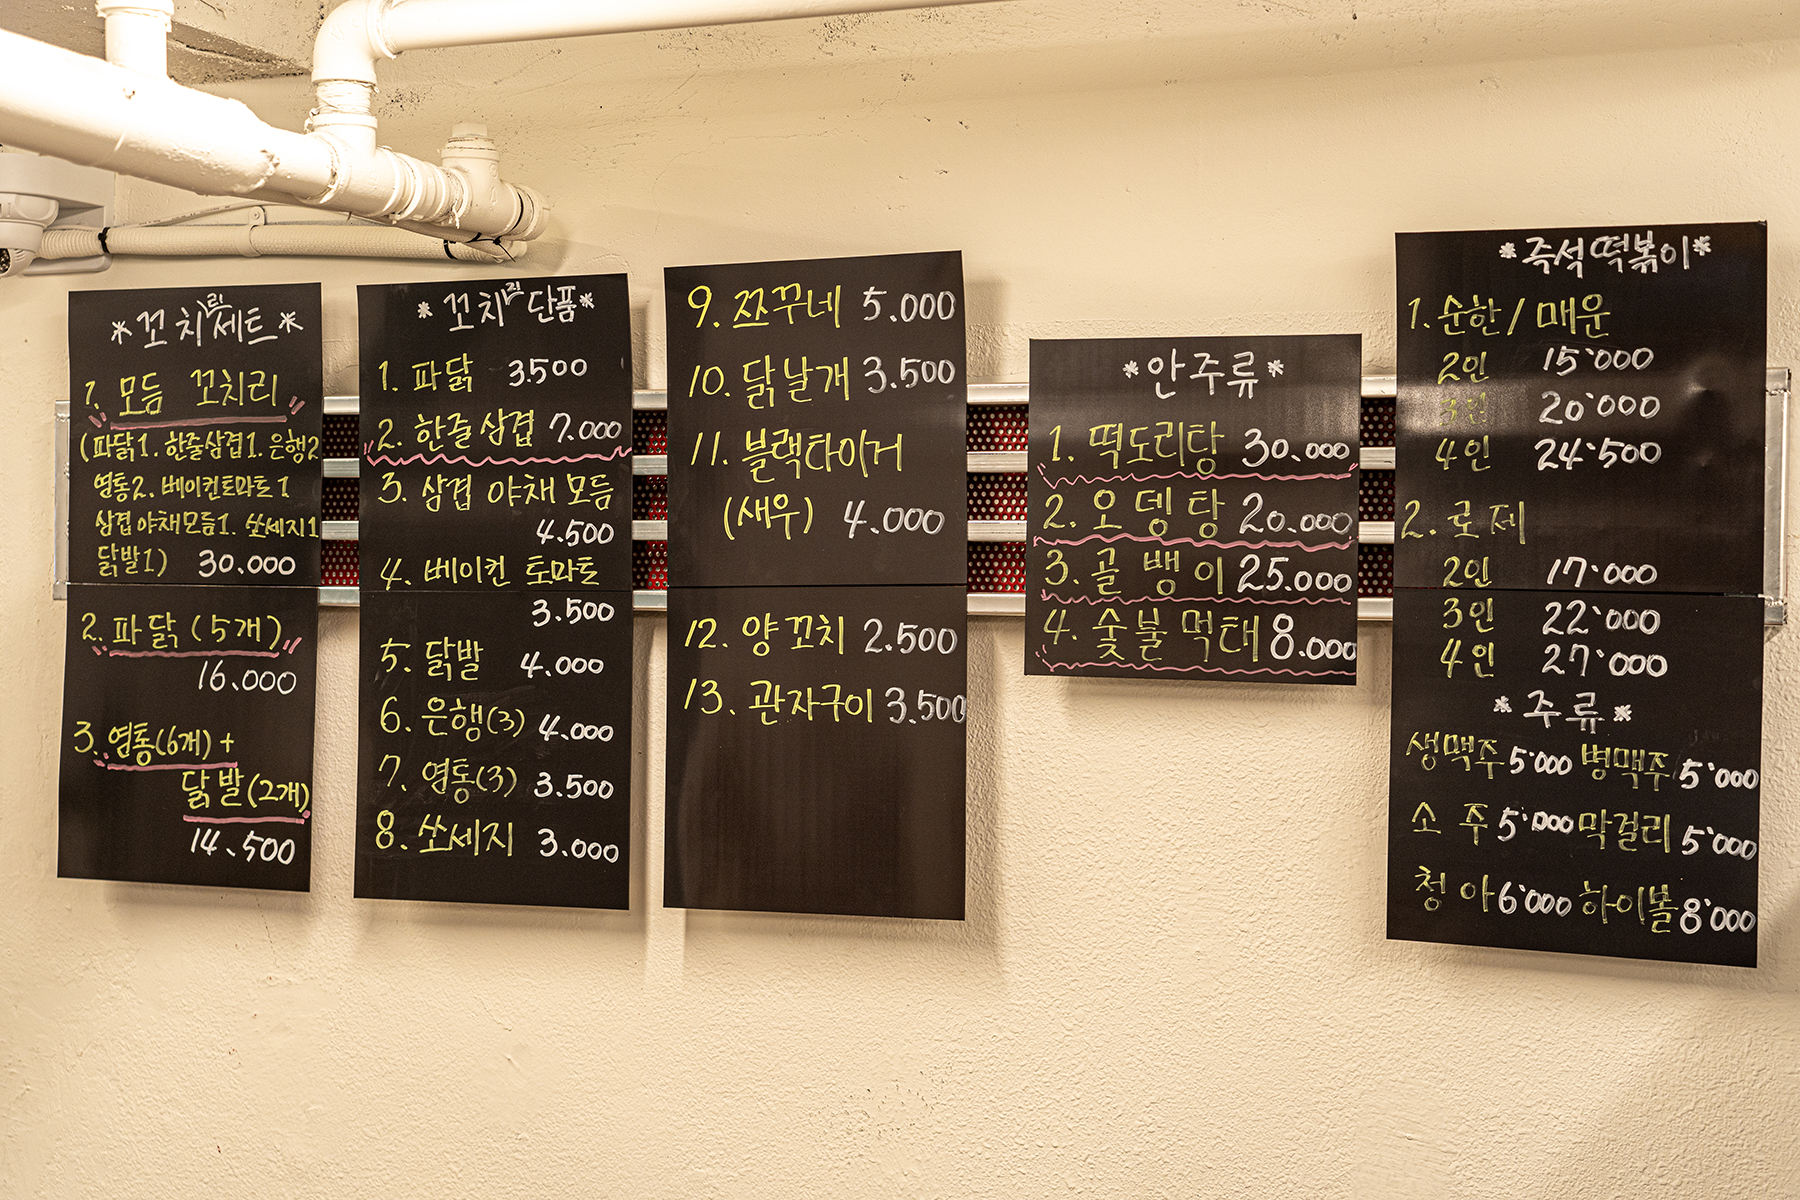 *꼬치리세트*
1. 모듬 꼬치리
(파닭1. 한줄삼겹1. 은행2
염통2. 베이컨토마토1
삼겹야채모듬1. 쏘세지1
닭발1) 30.000
2. 파닭(5개)
16.000
3. 염통(6개)+
닭발(2개)
14.500
*꼬치리단품*
1. 파닭 3.500
2. 한줄삼겹 7.000
3. 삼겹 야채 모듬
4.500
4. 베이컨 토마토
3.500
5. 닭발 4.000
6. 은행(3) 4.000
7. 염통(3) 3.500
8. 쏘세지 3.000
9. 쯔꾸네 5.000
10. 닭날개 3.500
11. 블랙타이거
(새우) 4.000
12. 양꼬치 2.500
13. 관자구이 3.500
*안주류*
1. 떡도리탕 30.000
2. 오뎅탕 20.000
3. 골뱅이 25.000
4. 숯불먹태 8.000
*즉석떡볶이*
1. 순한/매운
2인 15'000
3인 20'000
4인 24'500
2. 로제
2인 17'000
3인 22'000
4인 27'000
*주류*
생맥주 5'000 병맥주 5'000
소주 5'000 막걸리 5'000
청아 6'000 하이볼 8'000